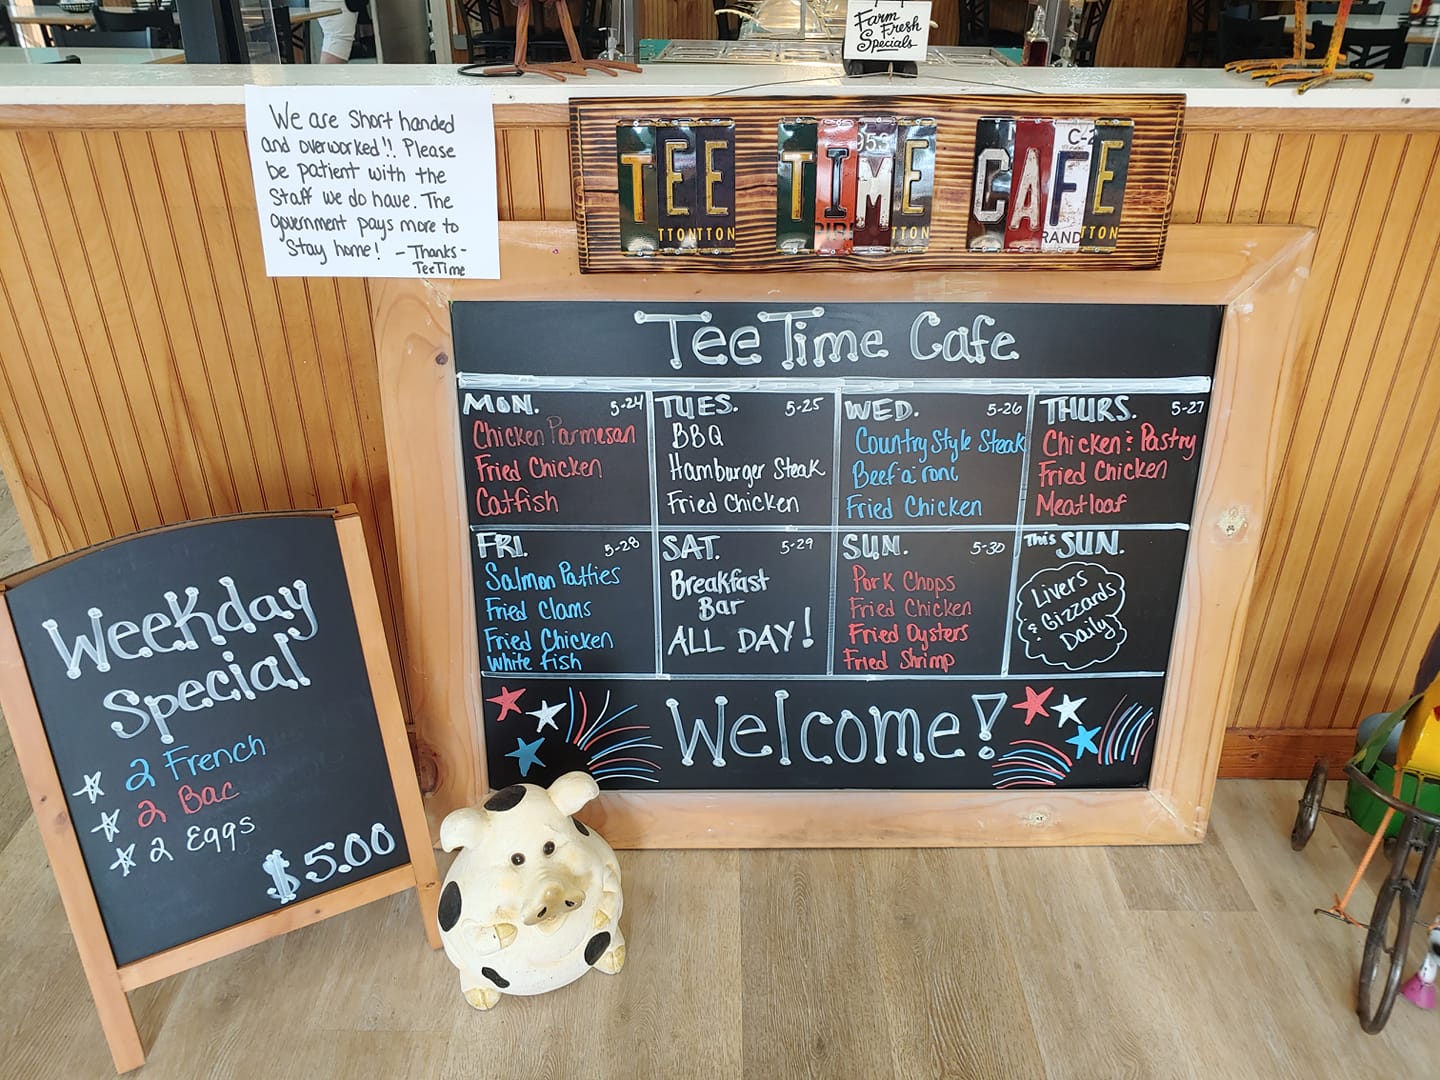 Farm
Fresh
Specials
We are Short handed
and overworked!! Please
be patient with the
Staff we do have. The
government pays more to
Stay home! - Thanks -
TeeTime
TEE TIME CAFE
953
C-2
TTON TTON
TTON
RAND
TTON
TeeTime Cafe
MON. 5-24
Chicken Parmesan
Fried Chicken
Catfish
TUES. 5-25
BBQ
Hamburger Steak
Fried Chicken
WED. 5-26
Country Style Steak
Beef a roni
Fried Chicken
THURS. 5-27
Chicken & Pastry
Fried Chicken
Meatloaf
FRI. 5-28
Salmon Patties
Fried Clams
Fried Chicken
White fish
SAT. 5-29
Breakfast
Bar
ALL DAY!
SUN. 5-30
Pork Chops
Fried Chicken
Fried Oysters
Fried Shrimp
This SUN.
Livers
& Gizzards
Daily
Welcome!
Weekday
Special
2 French
2 Bac
2 Eggs
$5.00